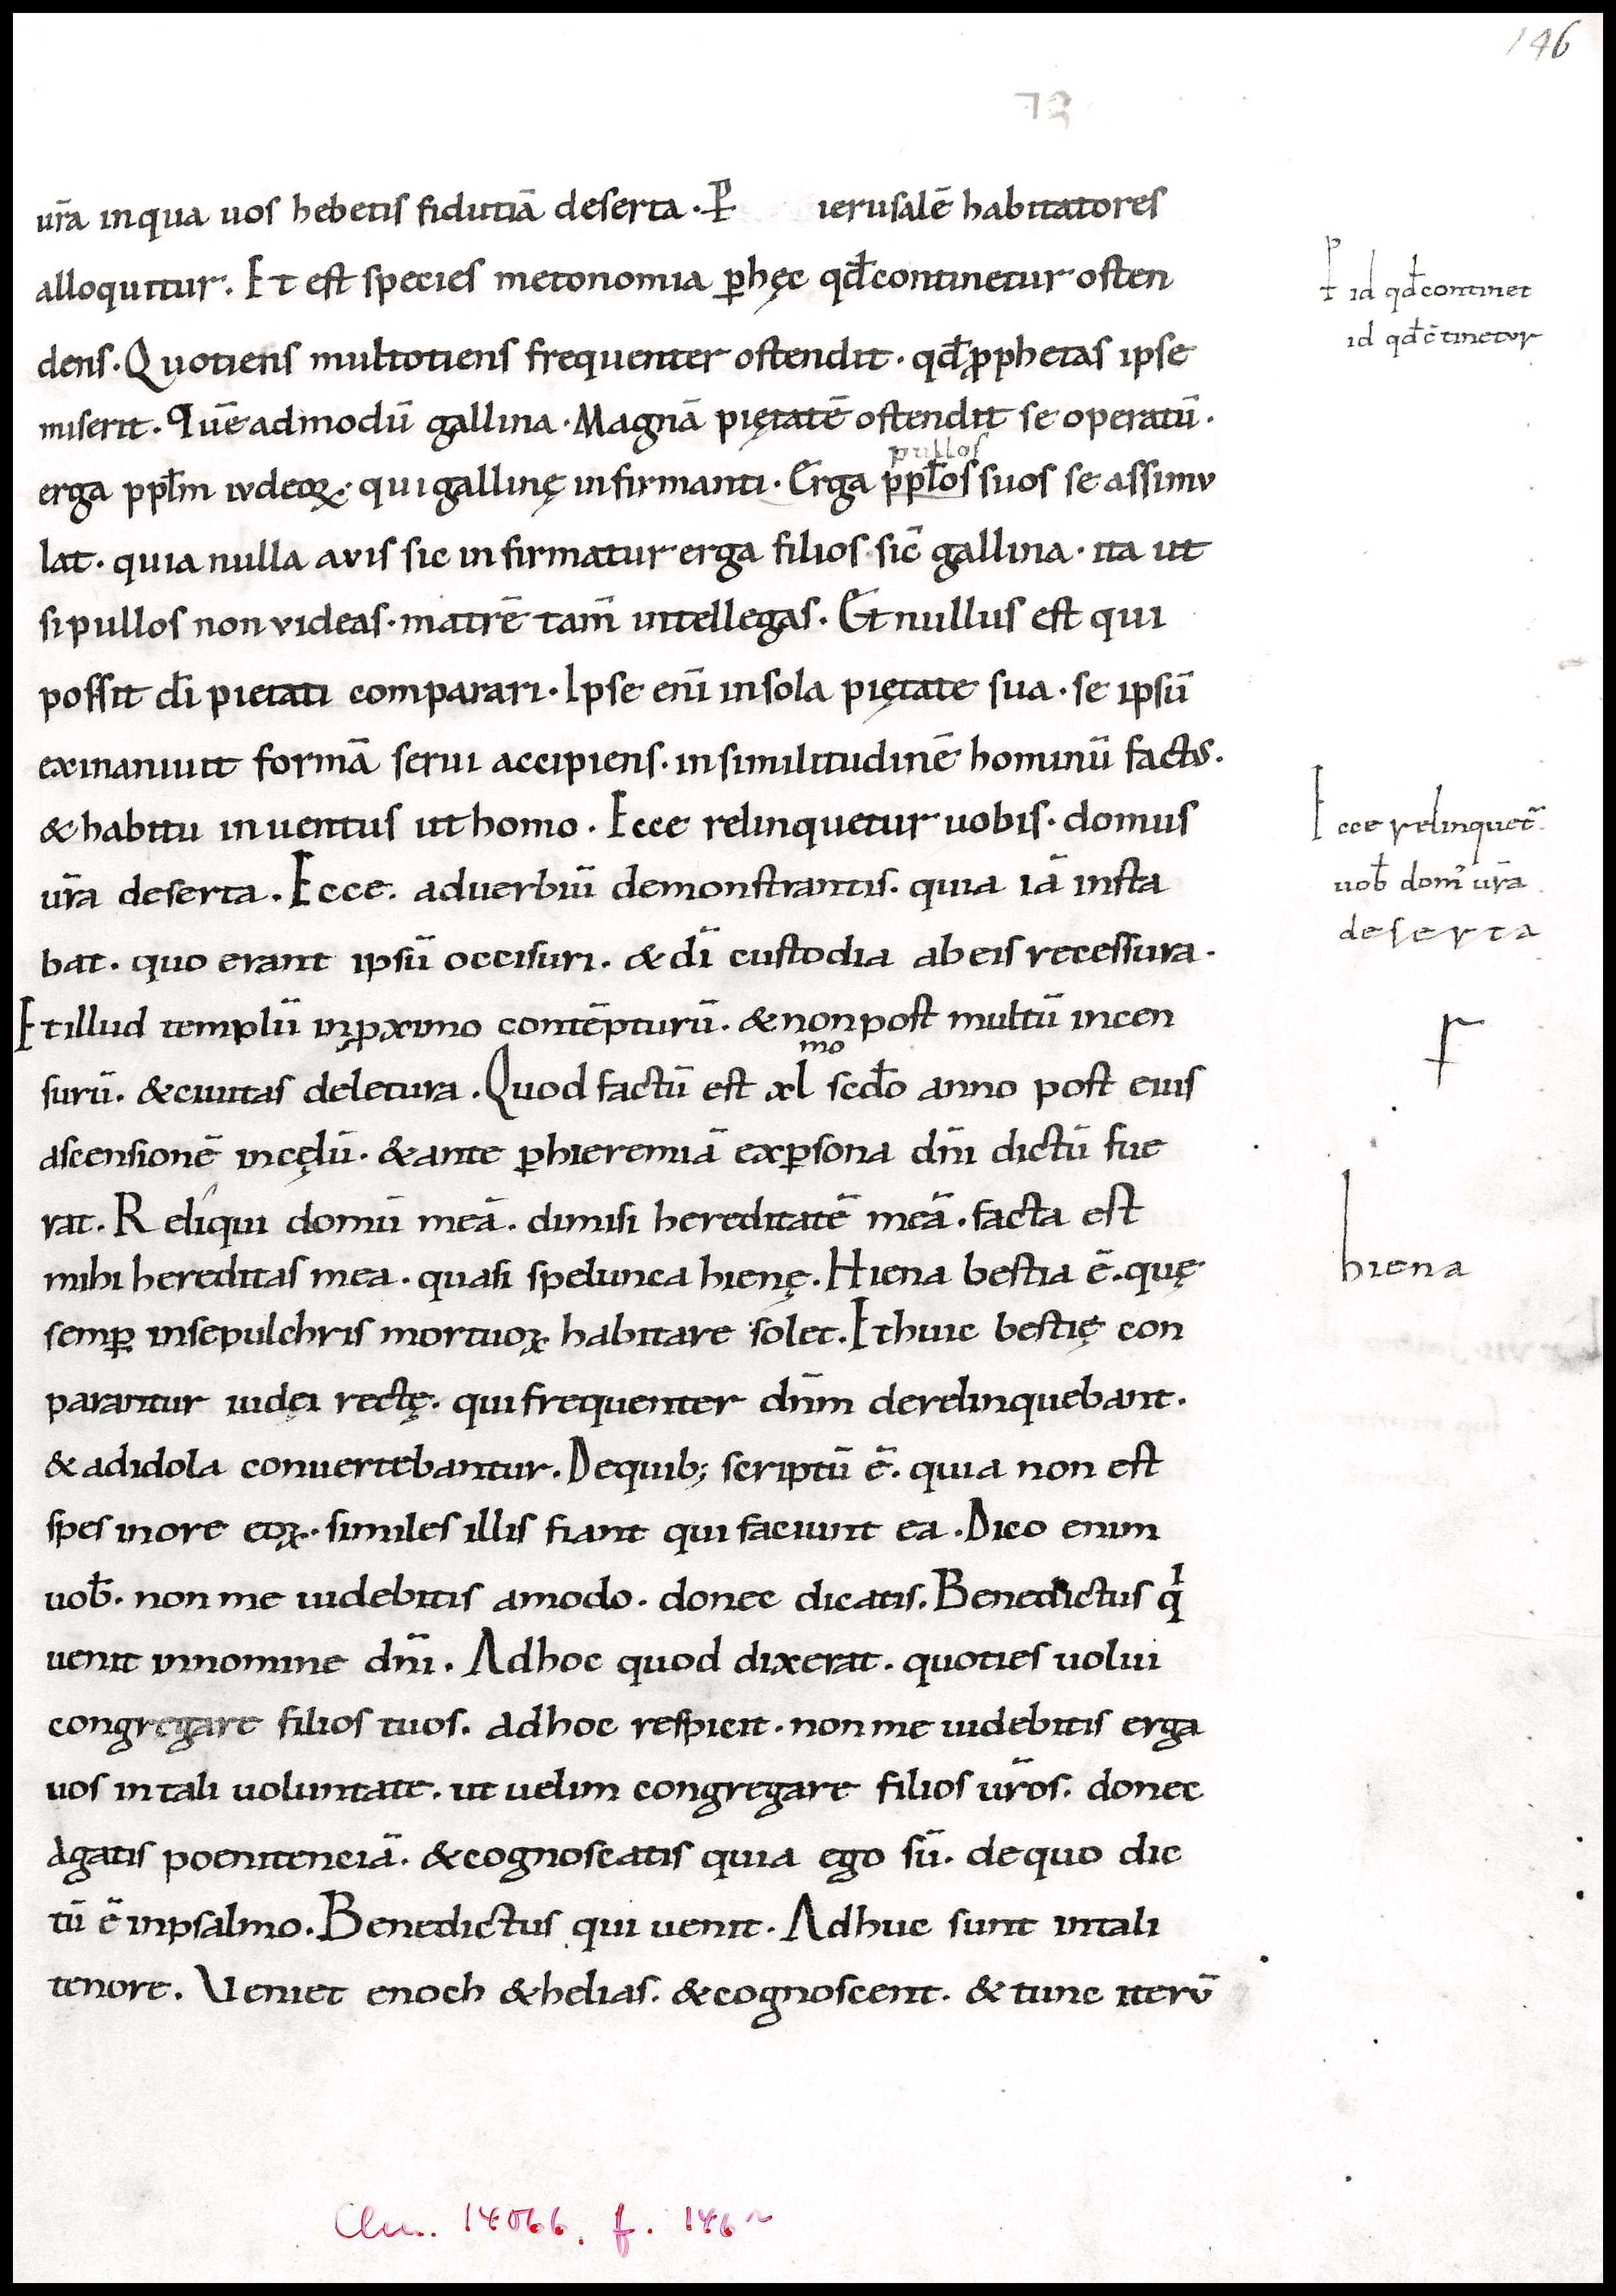 146
72
ur̄a inqua uos hebetis fidutiā deserta · ierusalē habitatores
alloquitur. Et est species metonomia ꝑhęc qđcontinetur osten
id qđcontinet
id qđc̄tinetur
dens. Quotiens multotiens frequenter ostendit. qđꝓphetas ipse
miserit. Quēadmodū gallina. Magnā piętatē ostendit se operatū.
pullos
erga pp̄lm iudeoꝝ. qui gallinę infirmanti. Erga pp̄los suos se assimu
lat. quia nulla avis sic infirmatur erga filios sic̄ gallina. ita ut
si pullos non videas. matrē tam̄ intellegas. Et nullus est qui
possit dī pietati comparari. Ipse eni̅ insola piętate sua. se ipsū
exinaniuit formā serui accipiens. in similitudinē hominū factus.
& habitu inuentus ut homo. Ecce relinquetur uobis. domus
Ecce relinquet̄
uob̄ dom̄ ur̄a
deserta
ur̄a deserta. Ecce. aduerbiū demonstrantis. quia iā insta
bat. quo erant ipsū occisuri. & dī custodia abeis recessura.
Et illud templū inꝓximo contēpturū. & non post multū incen
mo
surū. & ciuitas deletura. Quod factū est xl scd̄o anno post eius
ascensionē incęlū. & ante ꝑhieremiā exꝑsona dn̄i dictū fue
rat. Reliqui domū meā. dimisi hereditatē meā. facta est
mihi hereditas mea. quasi spelunca hienę. Hiena bestia ē. quę
hiena
semꝑ insepulchris mortuoꝝ habitare solet. Et huic bestię con
parantur iudęi rectę. qui frequenter dn̄m derelinquebant.
& adidola conuertebantur. Dequib; scriptū ē. quia non est
spes inore eoꝝ. similes illis fiant qui faciunt ea. Dico enim
uob̄. non me uidebitis amodo. donec dicatis. Benedictus qi
uenit innomine dn̄i. Adhoc quod dixerat. quoties uolui
congregare filios tuos. adhoc respicit. non me uidebitis erga
uos intali uoluntate. ut uelim congregare filios ur̄os. donec
Agatis poenitenciā. & cognoscatis quia ego sū. dequo dic
tū ē inpsalmo. Benedictus qui uenit. Adhuc sunt intali
tenore. Veniet enoch & helias. & cognoscent. & tunc iterū
Clm. 14066. f. 146r